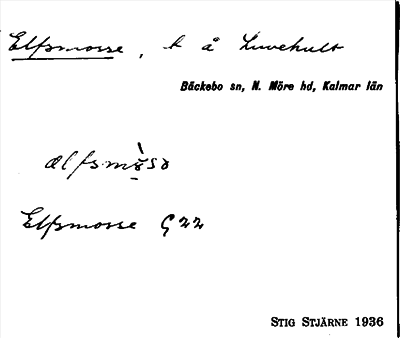 Elfsmosse, t å Luvehult
Bäckebo sn, N. Möre hd, Kalmar län
ælfsmòsə
Elfsmosse G22
STIG STJÄRNE 1936